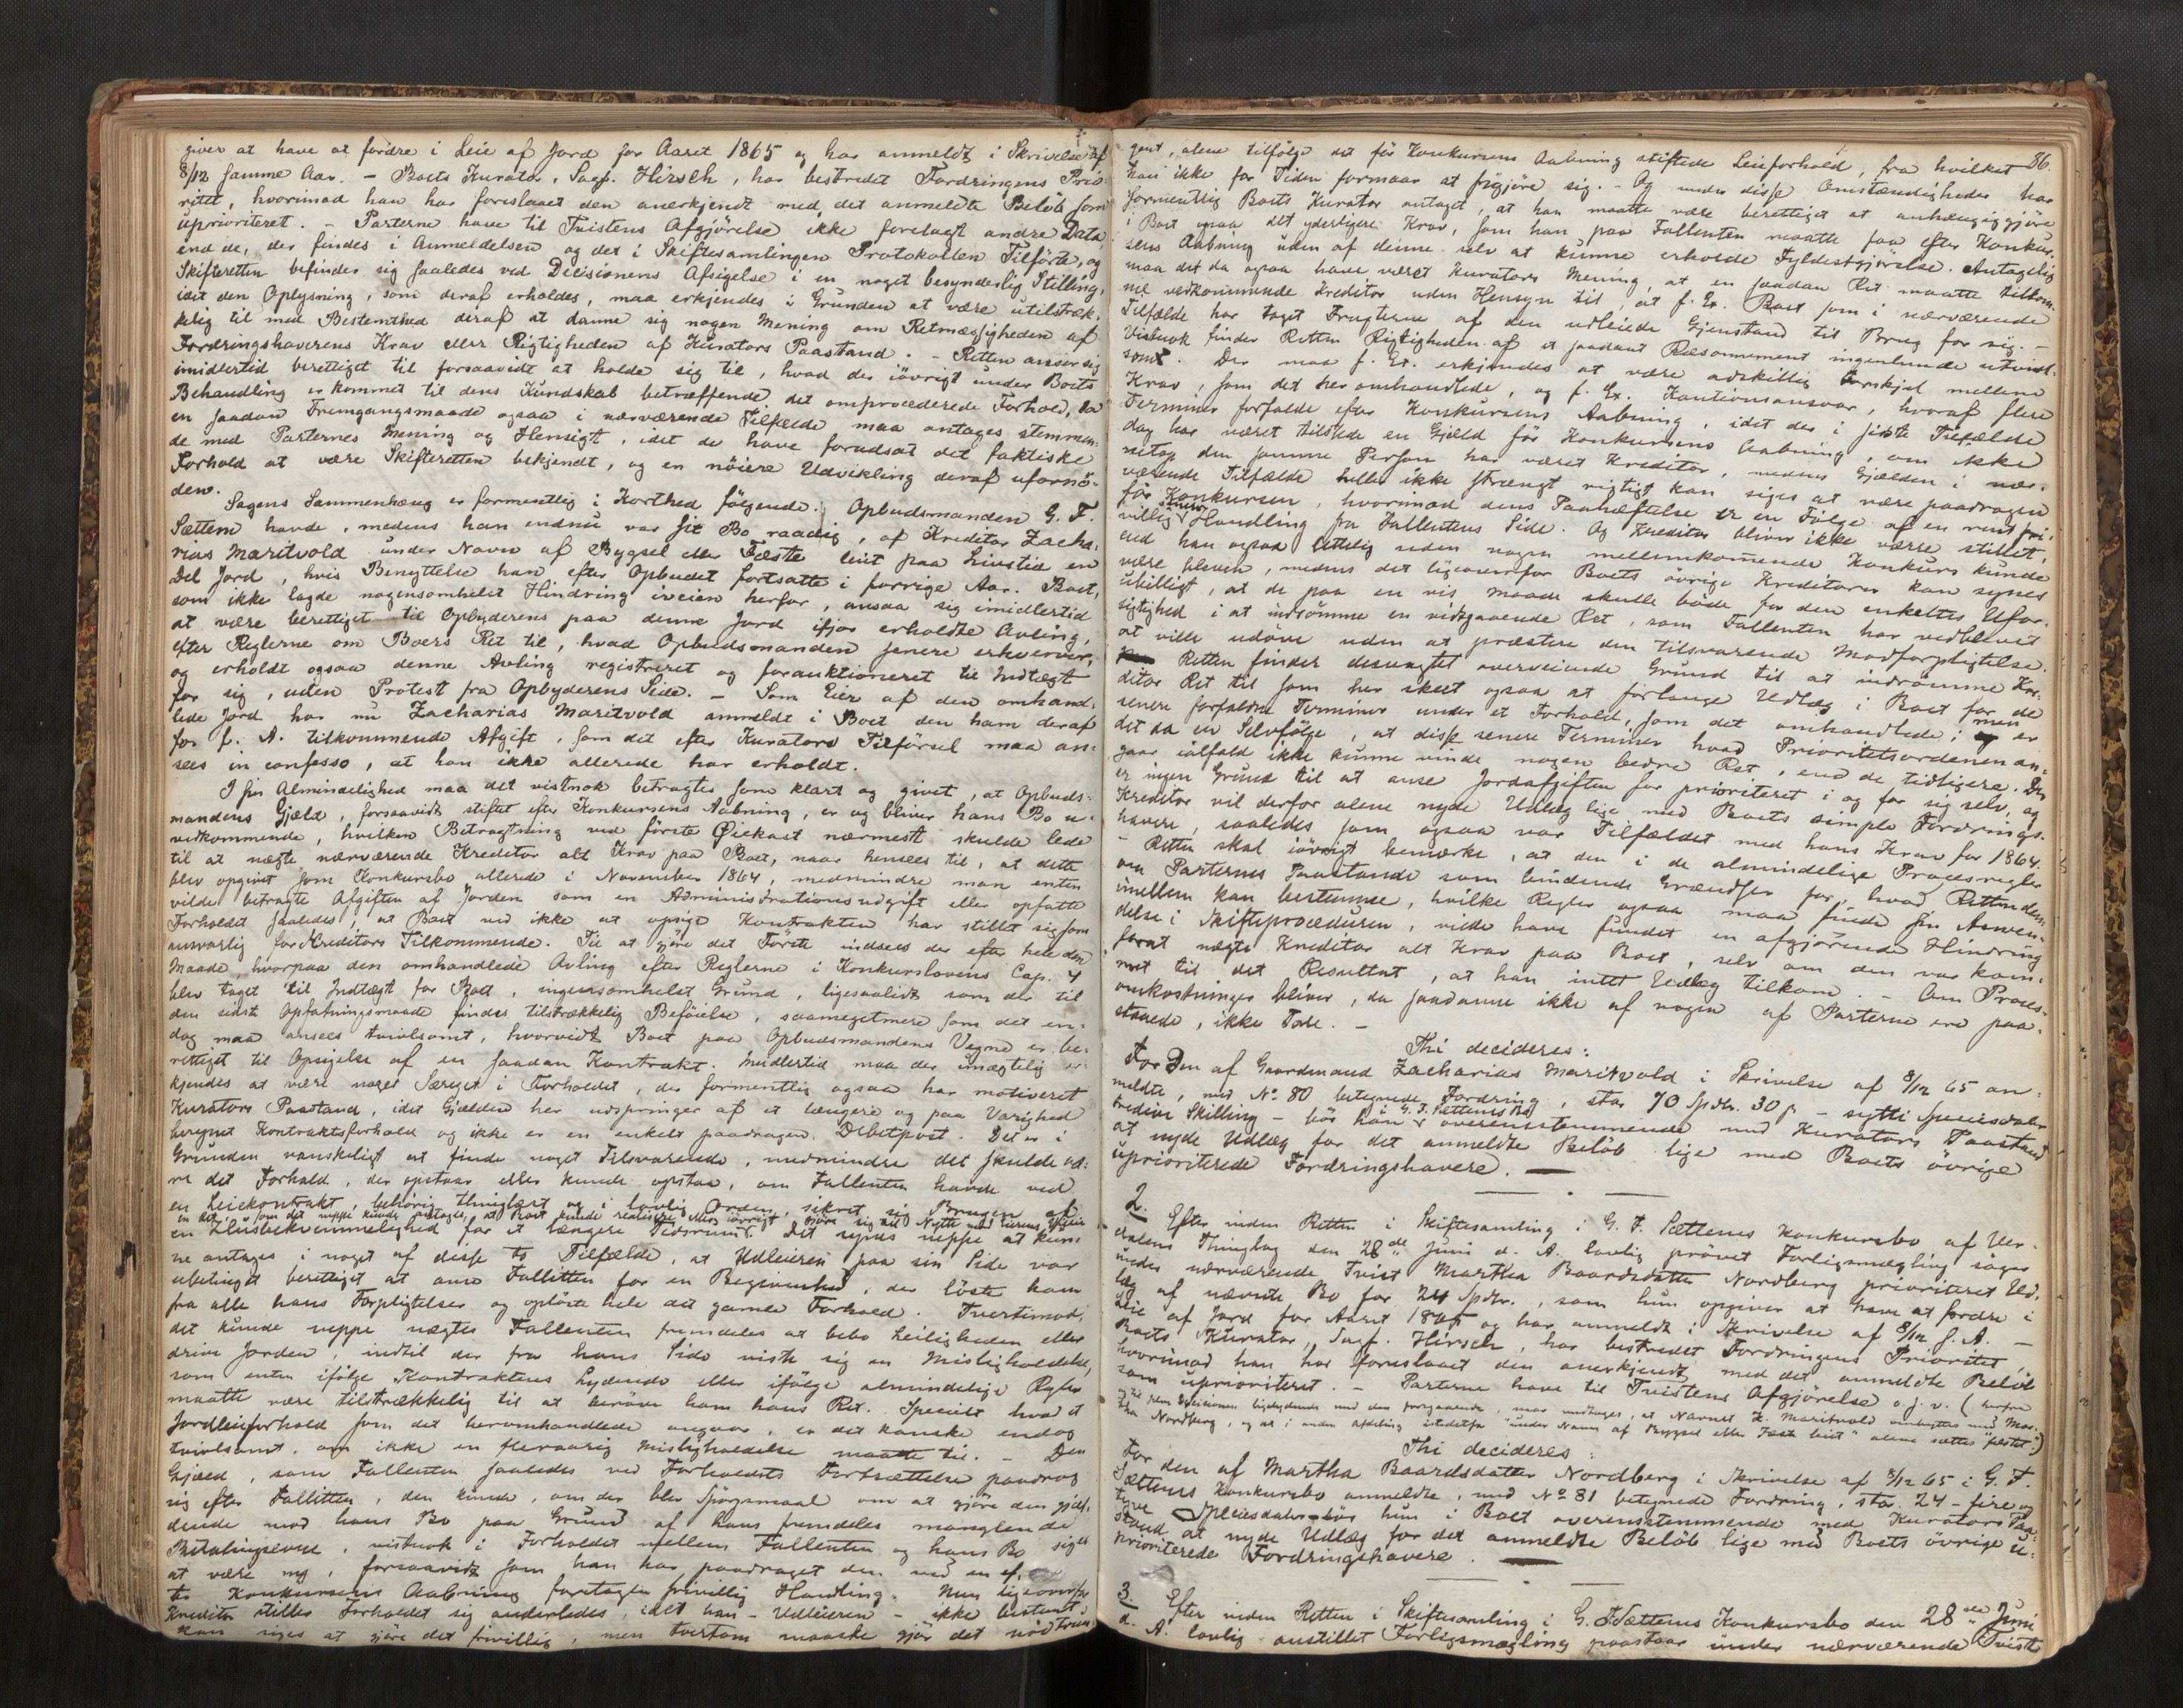 giver at have at fordre i Leie af Jord for Aaret 1865 og har anmeldt i Skrivelse af
8/12 samme Aar. – Boets Kurator, Sagf. Hirsch, har bestredet Fordringens Prio-
ritet, hvorimod han har foreslaaet den anerkjendt med det anmeldte Beløb som
uprioriteret. – Parterne have til Tvistens Afgjørelse ikke forelagt andre Data
end de, der findes i Anmeldelsen og det i Skiftesamlingen Protokollen Tilførte, og
Skifteretten befinder sig saaledes ved Decisionens Afsigelse i en noget besynderlig Stilling,
idet den Oplysning, som deraf erholdes, maa erkjendes i Grunden at være utilstræk-
kelig til med Bestemthed deraf at danne sig nogen Mening om Retmæsigheden af
Fordringshaverens Krav eller Rigtigheden af Kurators Paastand. – Retten anser sig
imidlertid berettiget til forsaavidt at holde sig til, hvad der iøvrigt under Boets
Behandling er kommet til dens Kundskab betræffende det omprocederede Forhold, da
en saadan Fremgangsmaade ogsaa i nærværende Tilfælde maa antages stemmen-
de med Parternes Mening og Hensigt, idet de have forudsat det faktiske
Forhold at være Skifteretten bekjendt, og en nøiere Udvikling deraf ufornø-
den.
Sagens Sammenhæng er formentlig i Korthed følgende: Opbudsmanden G. F.
Sættem havde, medens han endnu var sit Bo raadig, af Kreditor Zacha-
rias Maritvold under Navn af Bygsel eller Fæste leiet paa Livstid en
Del Jord, hvis Benyttelse han efter Opbudet fortsatte i forrige Aar. Boet,
som ikke lagde nogensomhelst Hindring iveien herfor, ansaa sig imidlertid
at være berettiget til Opbyderens paa denne Jord ifjor erholdte Avling,
efter Reglerne om Boers Ret til, hvad Opbudsmanden senere erhverver,
og erholdt ogsaa denne Avling registreret og forauktioneret til Indtægt
for sig, uden Protest fra Opbyderens Side. – Som Eier af den omhand-
lede Jord har nu Zacharias Maritvold anmeldt i Boet den ham deraf
for f. A. tilkommende Afgift, som det efter Kurators Tilførsel maa an-
sees in confesso, at han ikke allerede har erholdt.
I sin Almindelighed maa det vistnok betragtes som klart og givet, at Opbuds-
mandens Gjæld, forsaavidt stiftet efter Konkursens Aabning, er og bliver hans Bo u-
vedkommende, hvilken Betragtning ved første Øiekast nærmest skulde lede
til at nægte nærværende Kreditor alt Krav paa Boet, naar hensees til, at dette
blev opgivet som Konkursbo allerede i November 1864, medmindre man enten
vilde betragte Afgiften af Jorden som en Administrationsudgift eller opfatte
Forholdet saaledes, at Boet ved ikke at opsige Kontrakten har stillet sig som
ansvarlig for Kreditors Tilkommende. Til at gjøre det Første indsees der efter hele den
Maade, hvorpaa den omhandlede Avling efter Reglerne i Konkurslovens Cap. 4
blev taget til Indtægt for Boet, ingensomhelst Grund, ligesaalidt som der til
den sidst Opfatningsmaade findes tilstrækkelig Beføielse, saameget mere som det en-
dog maa ansees tvivlsomt, hvorvidt Boet paa Opbudsmandens Vegne er be-
rettiget til Opsigelse af en saadan Kontrakt. Imidlertid maa der unægtelig er-
kjendes at være noget Særeget i Forholdet, der formentlig ogsaa har motiveret
Kurators Paastand, idet Gjælden her udspringer af et længere og paa Varighed
beregnet Kontraktsforhold og ikke er en enkelt paadragen Debetpost. Det er i
Grunden vanskeligt at finde noget Tilsvarende, medmindre det skulde væ-
re det Forhold, der opstaar eller kunde opstaa, om Fallenten havde ved
en Leiekontrakt, behørig thinglæst og i lovlig Orden, sikret sig Brugen af
en Huusbekvemmelighed for et længere Tidsrum. Det synes neppe at kun-
ne antages i noget af disse to Tilfælde, at Udleieren paa sin Side var
ubetinget berettiget at anse Fallitten for en Begivenhed, der løste ham
fra alle hans Forpligtelser og opløste hele det gamle Forhold. Tvertimod,
det kunde neppe nægtes Fallenten fremdeles at bebo Leiligheden eller
drive Jorden, indtil der fra hans Side viste sig en Misligholdelse,
som enten ifølge Kontraktens Lydende eller ifølge almindelige Regler
maatte være tilstrækkelig til at berøve ham hans Ret. Specielt hvad et
Jordleieforhold som det heromhandlede angaar, er det kanske endog
tvivlsomt, om ikke en fleraarig Misligholdelse maatte til. – Den
Gjæld, som Fallenten saaledes ved Forholdets Fortsættelse paadrog
sig efter Fallitten, den kunde, om der blev Spørgsmaal om at gjøre den gjæl-
dende mod hans Bo paa Grund af hans fremdeles manglende
Betalingsevne, vistnok i Forholdet mellem Fallenten og hans Bo siges
at være ny, forsaavidt som han har paadraget den ved en ef-
ter Konkursens Aabning foretagen frivillig Handling. Men ligeoverfor
Kreditor stiller Forholdet sig anderledes, idet han – Udleieren – ikke bestemt
kan siges at gjøre det frivillig, men tvertom maaske gjør det nødtvun-
86.
gent, alene tilfølge det før Konkursens Aabning stiftede Leieforhold, fra hvilket
han ikke for Tiden formaar at frigjøre sig. – Og under disse Omstændigheder har
formentlig Boets Kurator antaget, at han maatte være berettiget at anhængiggjøre
i Boet ogsaa det yderligere Krav, som han paa Fallenten maatte faa efter Konkur-
sens Aabning uden af denne selv at kunne erholde Fyldestgjørelse. Antagelig
maa det da ogsaa have været Kurators Mening, at en saadan Ret maatte tilkom-
me vedkommende Kreditor uden Hensyn til, at f. Ex. Boet som i nærværende
Tilfælde har taget Frugterne af den udleiede Gjenstand til Brug for sig. –
Vistnok finder Retten Rigtigheden af et saadant Ræsonnement ingenlunde utvivl-
somt. Der maa f. Ex. erkjendes at være adskillig Forskjel mellem
Krav, som det her omhandlede, og f. Ex. Kautionsansvar, hvoraf flere
Terminer forfalde efter Konkursens Aabning, idet der i sidste Tilfælde
dog har været tilstede en Gjæld før Konkursens Aabning, om ikke
netop den samme Person har været Kreditor, medens Gjælden i nær-
værende Tilfælde heller ikke strængt rigtigt kan siges at være paadragen
før Konkursen, hvorimod dens Paahæftelse er en Følge af en rent fri-
villig Handling fra Fallentens Side. Og Kreditor bliver ikke værre stillet,
end han ogsaa lettelig uden nogen mellemkommende Konkurs kunde
være bleven, medens det ligeoverfor Boets øvrige Kreditorer kan synes
ubilligt, at de paa en vis Maade skulle bøde for den enkeltes Ufor-
sigtighed i at indrømme en vidtgaaende Ret, som Fallenten har vedblevet
at ville udøve uden at præstere den tilsvarende Modforpligtelse.
Retten finder desuagtet overveiende Grund til at indrømme Kre-
ditor Ret til som her skeet ogsaa at forlange Udlæg i Boet for de
senere forfaldne Terminer under et Forhold, som det omhandlede; men er
det da en Selvfølge, at disse senere Terminer hvad Prioritetsordenen an-
gaar ialfald ikke kunne vinde nogen bedre Ret, end de tidligere. Der
er ingen Grund til at anse Jordafgiften for prioriteret i og for sig selv, og
Kreditor vil derfor alene nyde Udlæg lige med Boets simple Fordrings-
havere, saaledes som ogsaa var Tilfældet med hans Krav for 1864.
– Retten skal iøvrigt bemærke, at den i de almindelige Procesregler
om Parternes Paastande som bindende Grændser for, hvad Retten dem
imellem kan bestemme, hvilke Regler ogsaa maa finde sin Anven-
delse i Skifteproceduren, vilde have fundet en afgjørende Hindring
forat nægte Kreditor alt Krav paa Boet, selv om den var kom-
met til det Resultat, at han intet Udlæg tilkom. – Om Proces-
omkostninger bliver, da saadanne ikke af nogen af Parterne ere paa-
staaede, ikke Tale. –
Thi decideres:
For den af Gaardmand Zacharias Maritvold i Skrivelse af 8/12 65 an-
meldte, med No 80 betegnede Fordring, stor 70 Spdlr. 30 ß – sytti Speciesdaler
tredive Skilling – bør han i G. F. Sættems Bo overensstemmende med Kurators Paastand
at nyde Udlæg for det anmeldte Beløb lige med Boets øvrige
uprioriterede Fordringshavere. —
2. Efter inden Retten i Skiftesamling i G. F. Sættems Konkursbo af Ver-
dalens Thinglag den 28de Juni d. A. lovlig prøvet Forligsmægling søger
under nærværende Tvist Martha Baardsdatter Nordberg prioriteret Ud-
læg af nævnte Bo for 24 Spdlr., som hun opgiver at have at fordre i
Leie af Jord for Aaret 1865 og har anmeldt i Skrivelse af 8/12 f. A. –
Boets Kurator, Sagf. Hirsch, har bestredet Fordringens Prioritet,
hvorimod han har foreslaaet den anerkjendt med det anmeldte Beløb
som uprioriteret. – Parterne have til Tvistens Afgjørelse o. s. v. (herfra
er den Decisionen ligelydende med den foregaaende, maa undtages, at Navnet Z. Maritvold ombyttes med Mar-
tha Nordberg, og at i anden Afdeling istedetfor "under Navn af Bygsel eller Fæste leiet" alene sættes "fæstet".)
Thi decideres:
For den af Martha Baardsdatter Nordberg i Skrivelse af 8/12 65 i G. F.
Sættems Konkursbo anmeldte, med No 81 betegnede Fordring, stor 24 – fire og
tyve Speciesdaler – bør hun i Boet overensstemmende med Kurators Paa-
stand at nyde Udlæg for det anmeldte Beløb lige med Boets øvrige u-
prioriterede Fordringshavere. —
3. Efter inden Retten i Skiftesamling i G. F. Sættems Konkursbo den 28de Juni
d. A. lovlig anstillet Forligsmægling paastaar under nærværende Tvist